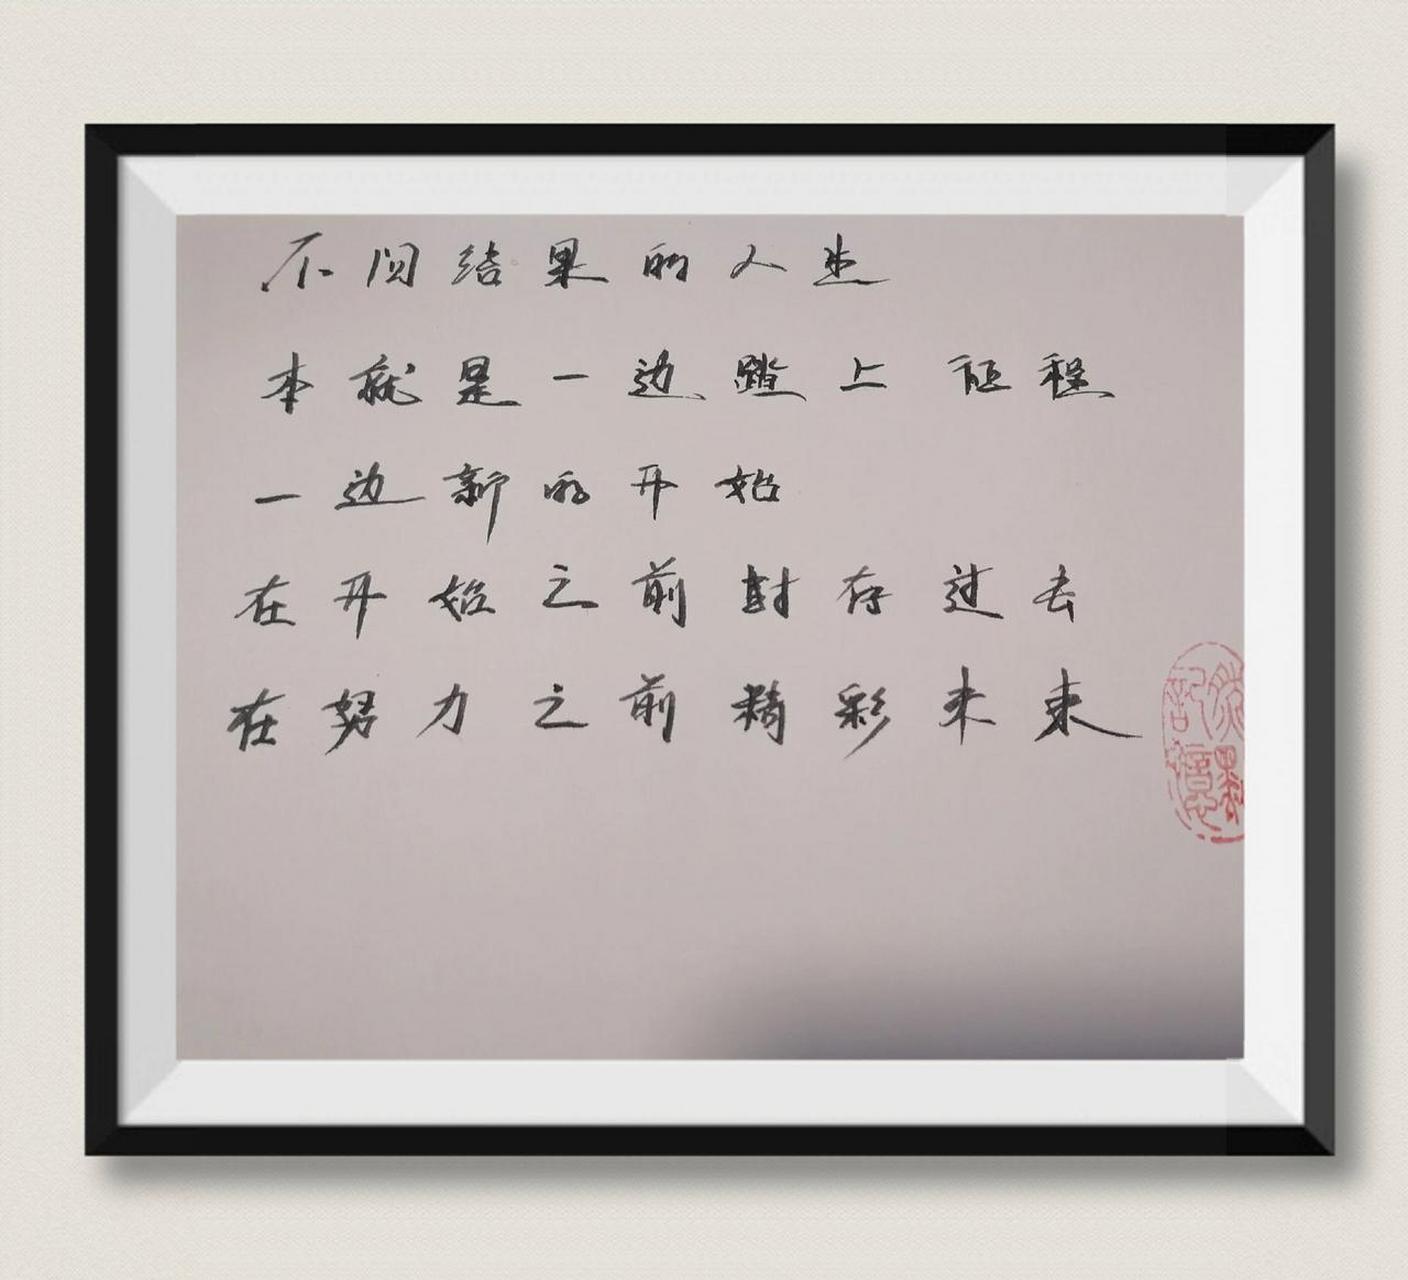 不问结果的人生
本就是一边踏上征程
一边新的开始
在开始之前封存过去
在努力之前精彩未来